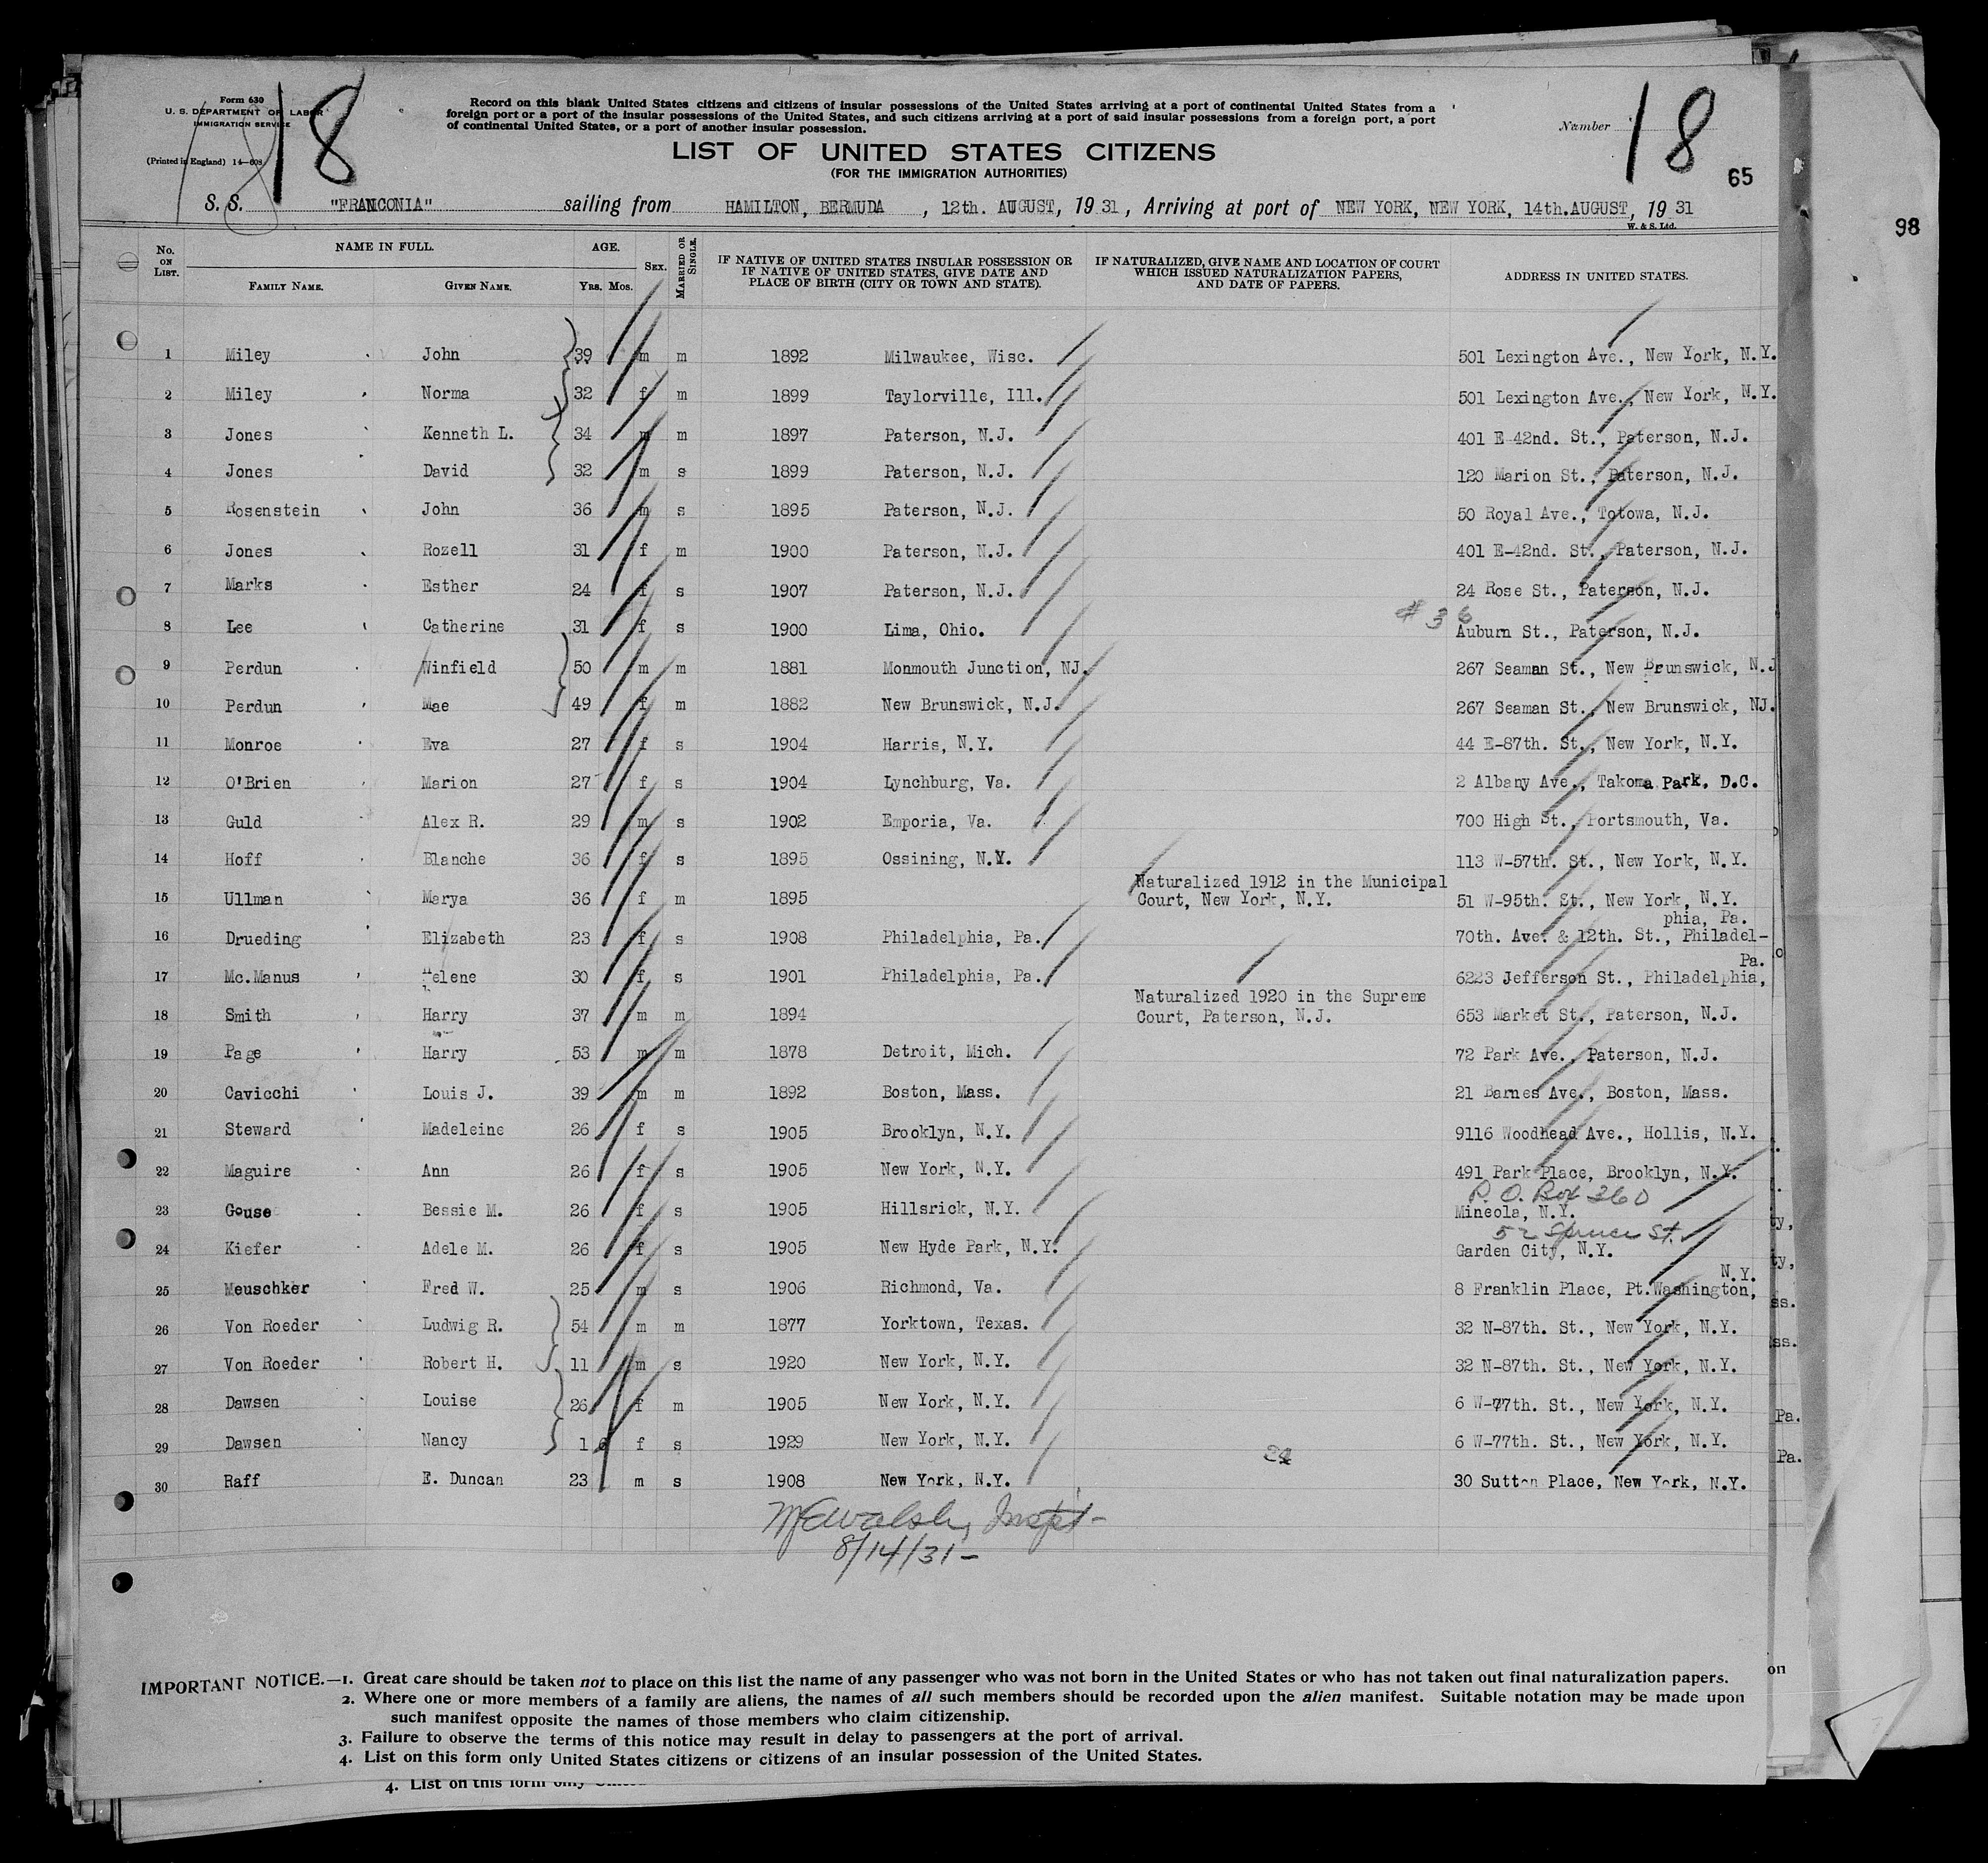 Form 630
U. S. DEPARTMENT OF LABOR
IMMIGRATION SERVICE
(Printed in England) 14—608
18
Record on this blank United States citizens and citizens of insular possessions of the United States arriving at a port of continental United States from a
foreign port or a port of the insular possessions of the United States, and such citizens arriving at a port of said insular possessions from a foreign port, a port
of continental United States, or a port of another insular possession.
LIST OF UNITED STATES CITIZENS
(FOR THE IMMIGRATION AUTHORITIES)
Number 18
65
98
S. S. "FRANCONIA" sailing from HAMILTON, BERMUDA, 12th. AUGUST, 1931, Arriving at port of NEW YORK, NEW YORK, 14th.AUGUST, 1931
W. & S. Ltd.
No. ON LIST. NAME IN FULL. AGE. SEX. MARRIED OR SINGLE. IF NATIVE OF UNITED STATES INSULAR POSSESSION OR IF NATIVE OF UNITED STATES, GIVE DATE AND PLACE OF BIRTH (CITY OR TOWN AND STATE). IF NATURALIZED, GIVE NAME AND LOCATION OF COURT WHICH ISSUED NATURALIZATION PAPERS, AND DATE OF PAPERS. ADDRESS IN UNITED STATES.
FAMILY NAME. GIVEN NAME. YRS. MOS.
1 Miley John 39 m m 1892 Milwaukee, Wisc. 501 Lexington Ave., New York, N.Y.
2 Miley Norma 32 f m 1899 Taylorville, Ill. 501 Lexington Ave., New York, N.Y.
3 Jones Kenneth L. 34 m m 1897 Paterson, N.J. 401 E-42nd. St., Paterson, N.J.
4 Jones David 32 m s 1899 Paterson, N.J. 120 Marion St., Paterson, N.J.
5 Rosenstein John 36 m s 1895 Paterson, N.J. 50 Royal Ave., Totowa, N.J.
6 Jones Rozell 31 f m 1900 Paterson, N.J. 401 E-42nd. St., Paterson, N.J.
7 Marks Esther 24 f s 1907 Paterson, N.J. 24 Rose St., Paterson, N.J.
8 Lee Catherine 31 f s 1900 Lima, Ohio. # 36 Auburn St., Paterson, N.J.
9 Perdun Winfield 50 m m 1881 Monmouth Junction, NJ. 267 Seaman St., New Brunswick, N.J
10 Perdun Mae 49 f m 1882 New Brunswick, N.J. 267 Seaman St., New Brunswick, NJ.
11 Monroe Eva 27 f s 1904 Harris, N.Y. 44 E-87th. St., New York, N.Y.
12 O'Brien Marion 27 f s 1904 Lynchburg, Va. 2 Albany Ave., Takoma Park, D.C.
13 Guld Alex R. 29 m s 1902 Emporia, Va. 700 High St., Portsmouth, Va.
14 Hoff Blanche 36 f s 1895 Ossining, N.Y. 113 W-57th. St., New York, N.Y.
Naturalized 1912 in the Municipal
15 Ullman Marya 36 f m 1895 Court, New York, N.Y. 51 W-95th. St., New York, N.Y.
phia, Pa.
16 Drueding Elizabeth 23 f s 1908 Philadelphia, Pa. 70th. Ave. & 12th. St., Philadel-
Pa.
17 Mc.Manus Helene 30 f s 1901 Philadelphia, Pa. 6223 Jefferson St., Philadelphia,
Naturalized 1920 in the Supreme
18 Smith Harry 37 m m 1894 Court, Paterson, N.J. 653 Market St., Paterson, N.J.
19 Page Harry 53 m m 1878 Detroit, Mich. 72 Park Ave., Paterson, N.J.
20 Cavicchi Louis J. 39 m m 1892 Boston, Mass. 21 Barnes Ave., Boston, Mass.
21 Steward Madeleine 26 f s 1905 Brooklyn, N.Y. 9116 Woodhead Ave., Hollis, N.Y.
22 Maguire Ann 26 f s 1905 New York, N.Y. 491 Park Place, Brooklyn, N.Y.
P. O. Box 260
23 Gouse Bessie M. 26 f s 1905 Hillsrick, N.Y. Mineola, N.Y.
52 Spruce St.
24 Kiefer Adele M. 26 f s 1905 New Hyde Park, N.Y. Garden City, N.Y.
N.Y.
25 Meuschker Fred W. 25 m s 1906 Richmond, Va. 8 Franklin Place, Pt.Washington,
26 Von Roeder Ludwig R. 54 m m 1877 Yorktown, Texas. 32 N-87th. St., New York, N.Y.
27 Von Roeder Robert H. 11 m s 1920 New York, N.Y. 32 N-87th. St., New York, N.Y.
28 Dawsen Louise 26 f m 1905 New York, N.Y. 6 W-77th. St., New York, N.Y.
29 Dawsen Nancy 1 6 f s 1929 New York, N.Y. 6 W-77th. St., New York, N.Y.
30 Raff E. Duncan 23 m s 1908 New York, N.Y. 30 Sutton Place, New York, N.Y.
Walsh, Inspt-
8/14/31-
IMPORTANT NOTICE.—1. Great care should be taken not to place on this list the name of any passenger who was not born in the United States or who has not taken out final naturalization papers.
2. Where one or more members of a family are aliens, the names of all such members should be recorded upon the alien manifest. Suitable notation may be made upon
such manifest opposite the names of those members who claim citizenship.
3. Failure to observe the terms of this notice may result in delay to passengers at the port of arrival.
4. List on this form only United States citizens or citizens of an insular possession of the United States.
4. List on this form only